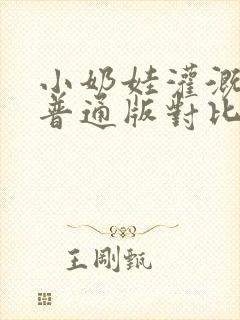 小奶娃灌溉
普通版對比
王剛甄